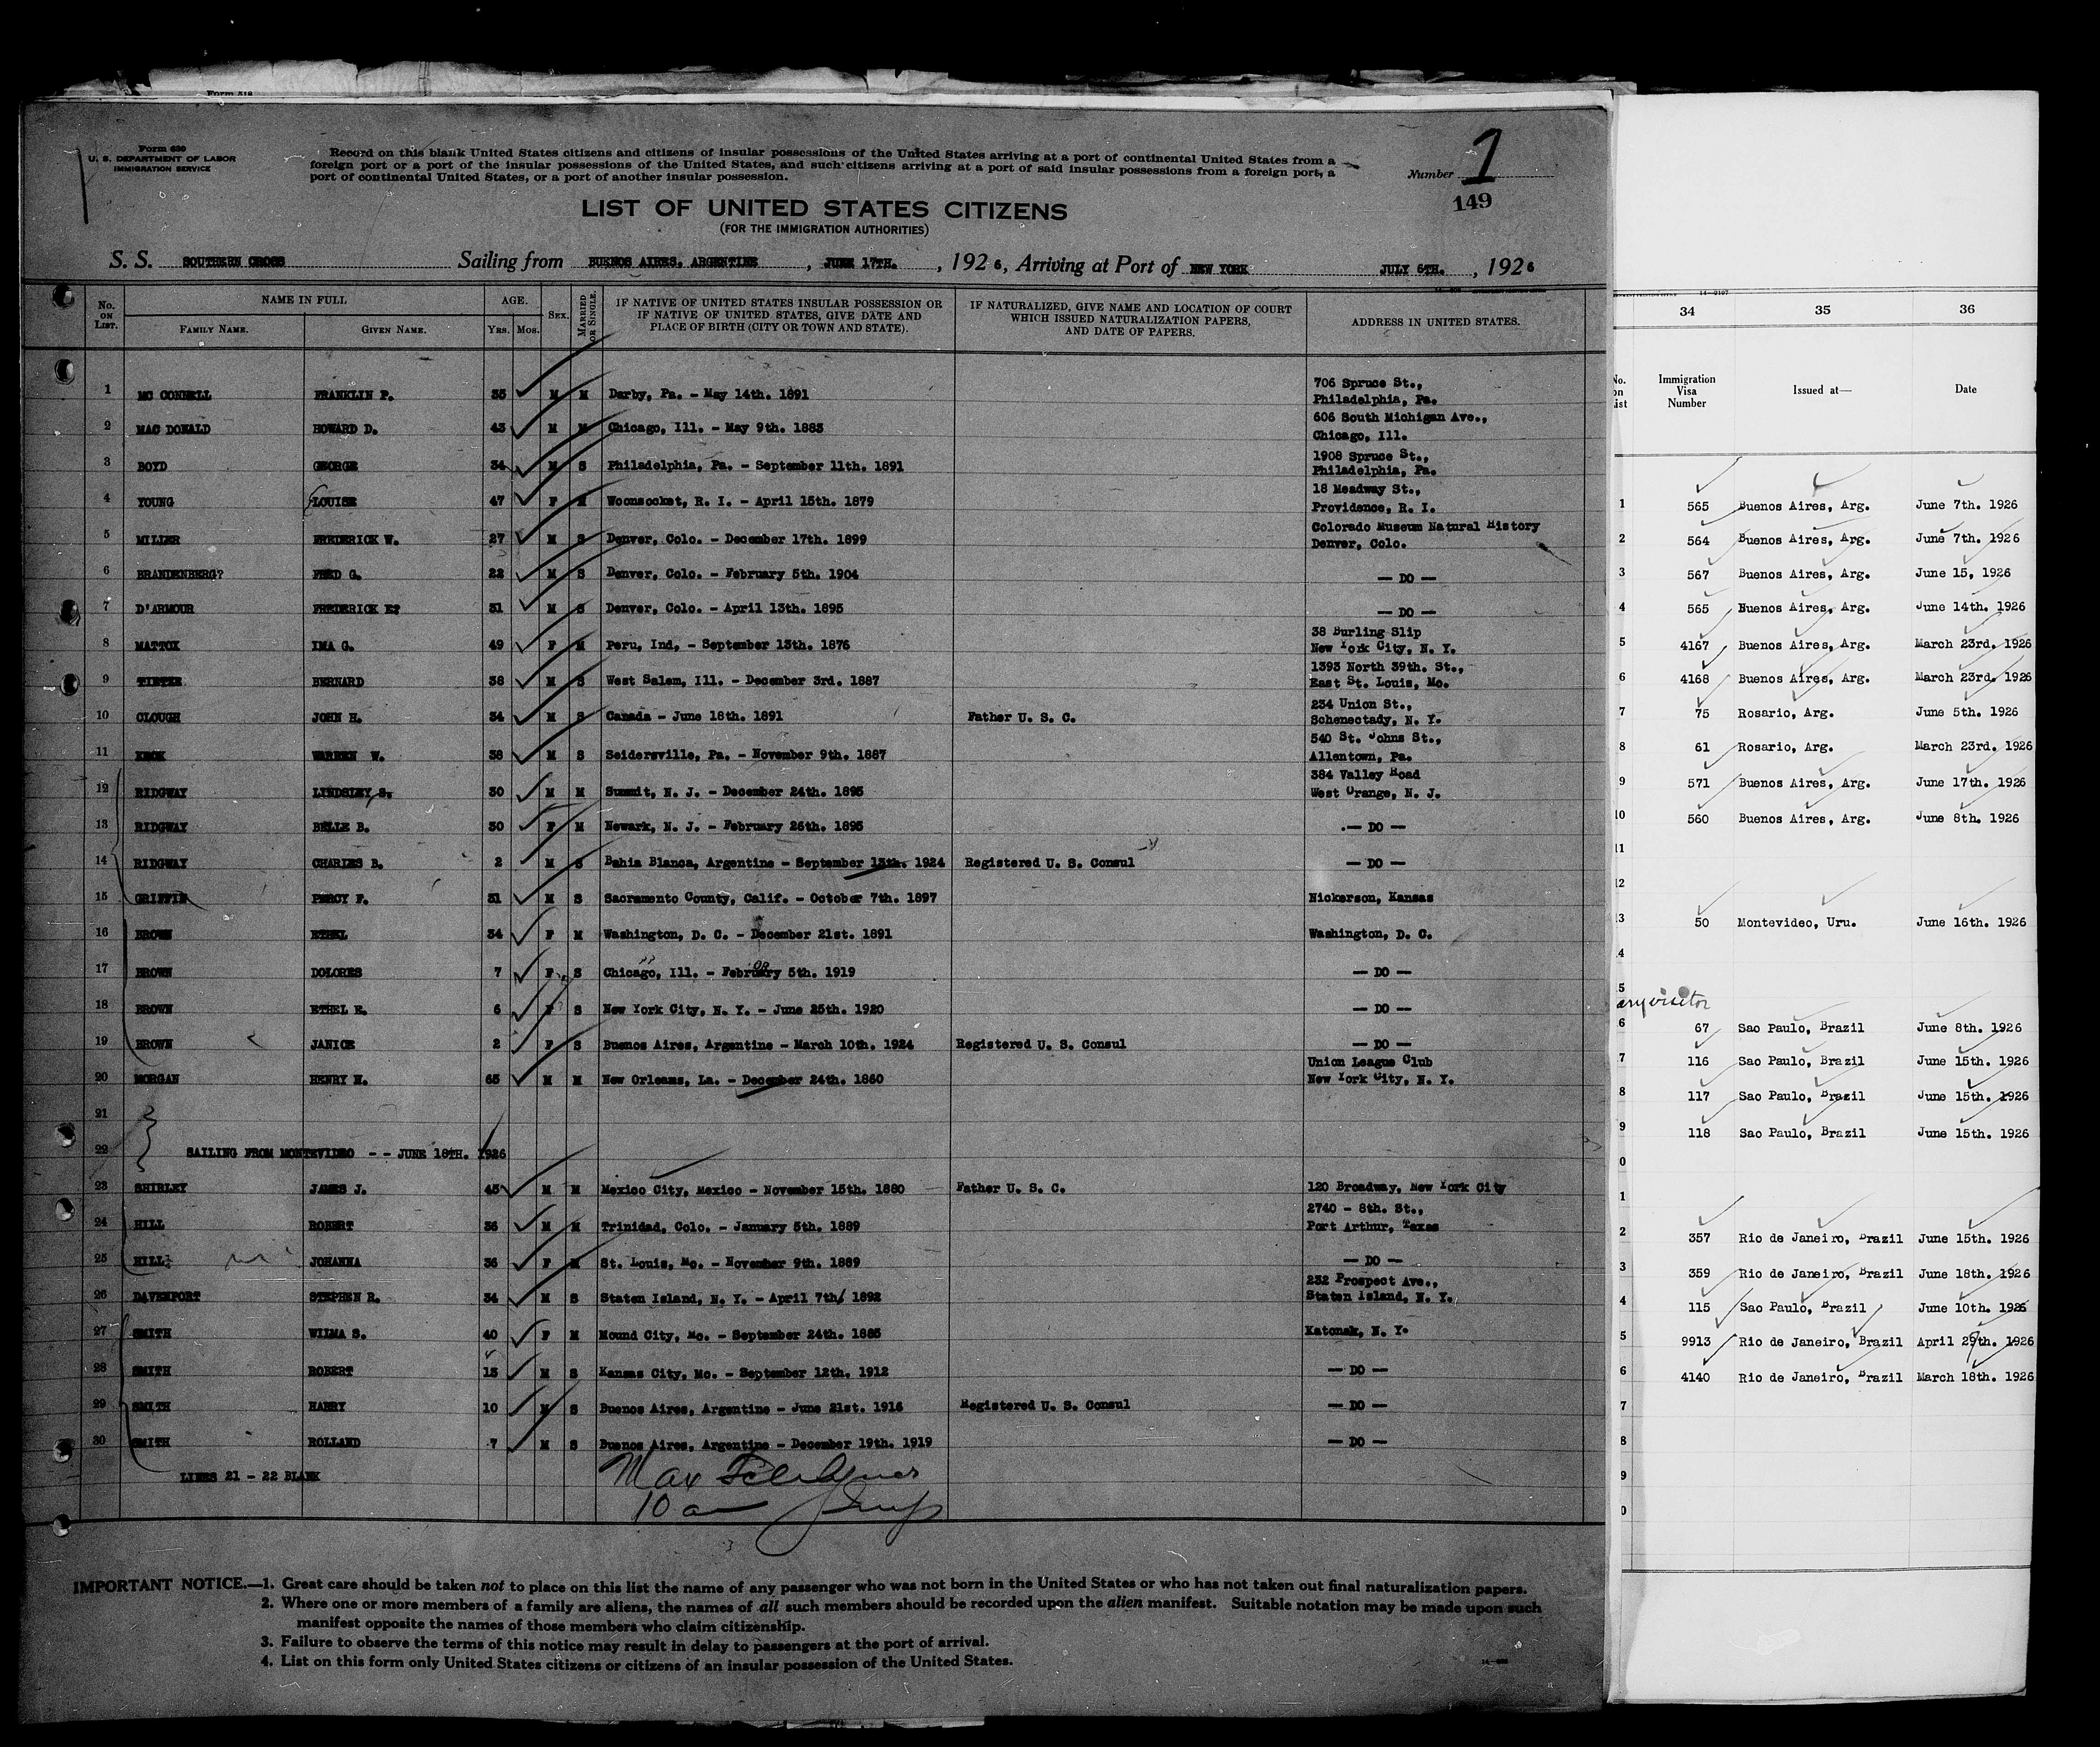 Form 518
Form 630
U. S. DEPARTMENT OF LABOR
IMMIGRATION SERVICE
Record on this blank United States citizens and citizens of insular possessions of the United States arriving at a port of continental United States from a
foreign port or a port of the insular possessions of the United States, and such citizens arriving at a port of said insular possessions from a foreign port, a
port of continental United States, or a port of another insular possession.
Number 1
149
LIST OF UNITED STATES CITIZENS
(FOR THE IMMIGRATION AUTHORITIES)
S. S. SOUTHERN CROSS Sailing from BUENOS AIRES. ARGENTINE , JUNE 17TH. , 1926, Arriving at Port of NEW YORK JULY 6TH. , 1926
No. ON LIST. NAME IN FULL FAMILY NAME. GIVEN NAME. AGE. Yrs. Mos. SEX. MARRIED OR SINGLE. IF NATIVE OF UNITED STATES INSULAR POSSESSION OR IF NATIVE OF UNITED STATES, GIVE DATE AND PLACE OF BIRTH (CITY OR TOWN AND STATE). IF NATURALIZED, GIVE NAME AND LOCATION OF COURT WHICH ISSUED NATURALIZATION PAPERS, AND DATE OF PAPERS. ADDRESS IN UNITED STATES.
1 MC CONNELL FRANKLIN P. 35 M M Darby, Pa. - May 14th. 1891 706 Spruce St., Philadelphia, Pa.
2 MAC DONALD HOWARD D. 43 M M Chicago, Ill. - May 9th. 1883 606 South Michigan Ave., Chicago, Ill.
3 BOYD GEORGE 34 M S Philadelphia, Pa. - September 11th. 1891 1908 Spruce St., Philadelphia, Pa.
4 YOUNG LOUISE 47 F M Woonsocket, R. I. - April 15th. 1879 18 Meadway St., Providence, R. I.
5 MILLER FREDERICK W. 27 M S Denver, Colo. - December 17th. 1899 Colorado Museum Natural History Denver, Colo.
6 BRANDENBERG? FRED G. 22 M S Denver, Colo. - February 5th. 1904 — DO —
7 D'ARMOUR FREDERICK E? 31 M S Denver, Colo. - April 13th. 1895 — DO —
8 MATTOX IMA G. 49 F M Peru, Ind, - September 13th. 1876 38 Burling Slip New York City, N. Y.
9 BERNARD 38 M S West Salem, Ill. - December 3rd. 1887 1393 North 39th. St., East St. Louis, Mo.
10 CLOUGH JOHN H. 34 M S Canada - June 18th. 1891 Father U. S. C. 234 Union St., Schenectady, N. Y.
11 KECK WARREN W. 38 M S Seidersville, Pa. - November 9th. 1887 540 St. Johns St., Allentown, Pa.
12 RIDGWAY LINDSLEY S. 30 M M Summit, N. J. - December 24th. 1895 384 Valley Road West Orange, N. J.
13 RIDGWAY BELLE B. 30 F M Newark, N. J. - February 26th. 1895 — DO —
14 RIDGWAY CHARLES B. 2 M S Bahia Blanca, Argentine - September 13th. 1924 Registered U. S. Consul — DO —
15 GRIFFIN PERCY F. 31 M S Sacramento County, Calif. - October 7th. 1897 Nickerson, Kansas
16 BROWN ETHEL 34 F M Washington, D. C. - December 21st. 1891 Washington, D. C.
17 BROWN DOLORES 7 F S Chicago, Ill. - February 5th. 1919 — DO —
18 BROWN ETHEL E. 6 F S New York City, N. Y. - June 25th. 1920 — DO —
19 BROWN JANICE 2 F S Buenos Aires, Argentine - March 10th. 1924 Registered U. S. Consul — DO —
20 MORGAN HENRY M. 65 M M New Orleans, La. - December 24th. 1860 Union League Club New York City, N. Y.
21
22 SAILING FROM MONTEVIDEO - - JUNE 18TH. 1926
23 SHIRLEY JAMES J. 45 M M Mexico City, Mexico - November 15th. 1880 Father U. S. C. 120 Broadway, New York City
24 HILL ROBERT 36 M M Trinidad, Colo. - January 5th. 1889 2740 - 8th. St., Port Arthur, Texas
25 HILL JOHANNA 36 F M St. Louis, Mo. - November 9th. 1889 — DO —
26 DAVENPORT STEPHEN R. 34 M S Staten Island, N. Y. - April 7th/ 1892 232 Prospect Ave., Staten Island, N. Y.
27 SMITH WILMA S. 40 F M Mound City, Mo. - September 24th. 1885 Katonak, N. Y.
28 SMITH ROBERT 13 M S Kansas City, Mo. - September 12th. 1912 — DO —
29 SMITH HARRY 10 M S Buenos Aires, Argentine - June 21st. 1916 Registered U. S. Consul — DO —
30 SMITH ROLLAND 7 M S Buenos Aires, Argentine - December 19th. 1919 — DO —
LINES 21 - 22 BLANK
Max
10 am
IMPORTANT NOTICE.—1. Great care should be taken not to place on this list the name of any passenger who was not born in the United States or who has not taken out final naturalization papers.
2. Where one or more members of a family are aliens, the names of all such members should be recorded upon the alien manifest. Suitable notation may be made upon such
manifest opposite the names of those members who claim citizenship.
3. Failure to observe the terms of this notice may result in delay to passengers at the port of arrival.
4. List on this form only United States citizens or citizens of an insular possession of the United States.
34 35 36
No. on List Immigration Visa Number Issued at— Date
1 565 Buenos Aires, Arg. June 7th. 1926
2 564 Buenos Aires, Arg. June 7th. 1926
3 567 Buenos Aires, Arg. June 15, 1926
4 565 Buenos Aires, Arg. June 14th. 1926
5 4167 Buenos Aires, Arg. March 23rd. 1926
6 4168 Buenos Aires, Arg. March 23rd. 1926
7 75 Rosario, Arg. June 5th. 1926
8 61 Rosario, Arg. March 23rd. 1926
9 571 Buenos Aires, Arg. June 17th. 1926
10 560 Buenos Aires, Arg. June 8th. 1926
11
12
13 50 Montevideo, Uru. June 16th. 1926
4
5
visitor
6 67 Sao Paulo, Brazil June 8th. 1926
7 116 Sao Paulo, Brazil June 15th. 1926
8 117 Sao Paulo, Brazil June 15th. 1926
9 118 Sao Paulo, Brazil June 15th. 1926
0
1
2 357 Rio de Janeiro, Brazil June 15th. 1926
3 359 Rio de Janeiro, Brazil June 18th. 1926
4 115 Sao Paulo, Brazil June 10th. 1926
5 9913 Rio de Janeiro, Brazil April 29th. 1926
6 4140 Rio de Janeiro, Brazil March 18th. 1926
7
8
9
0